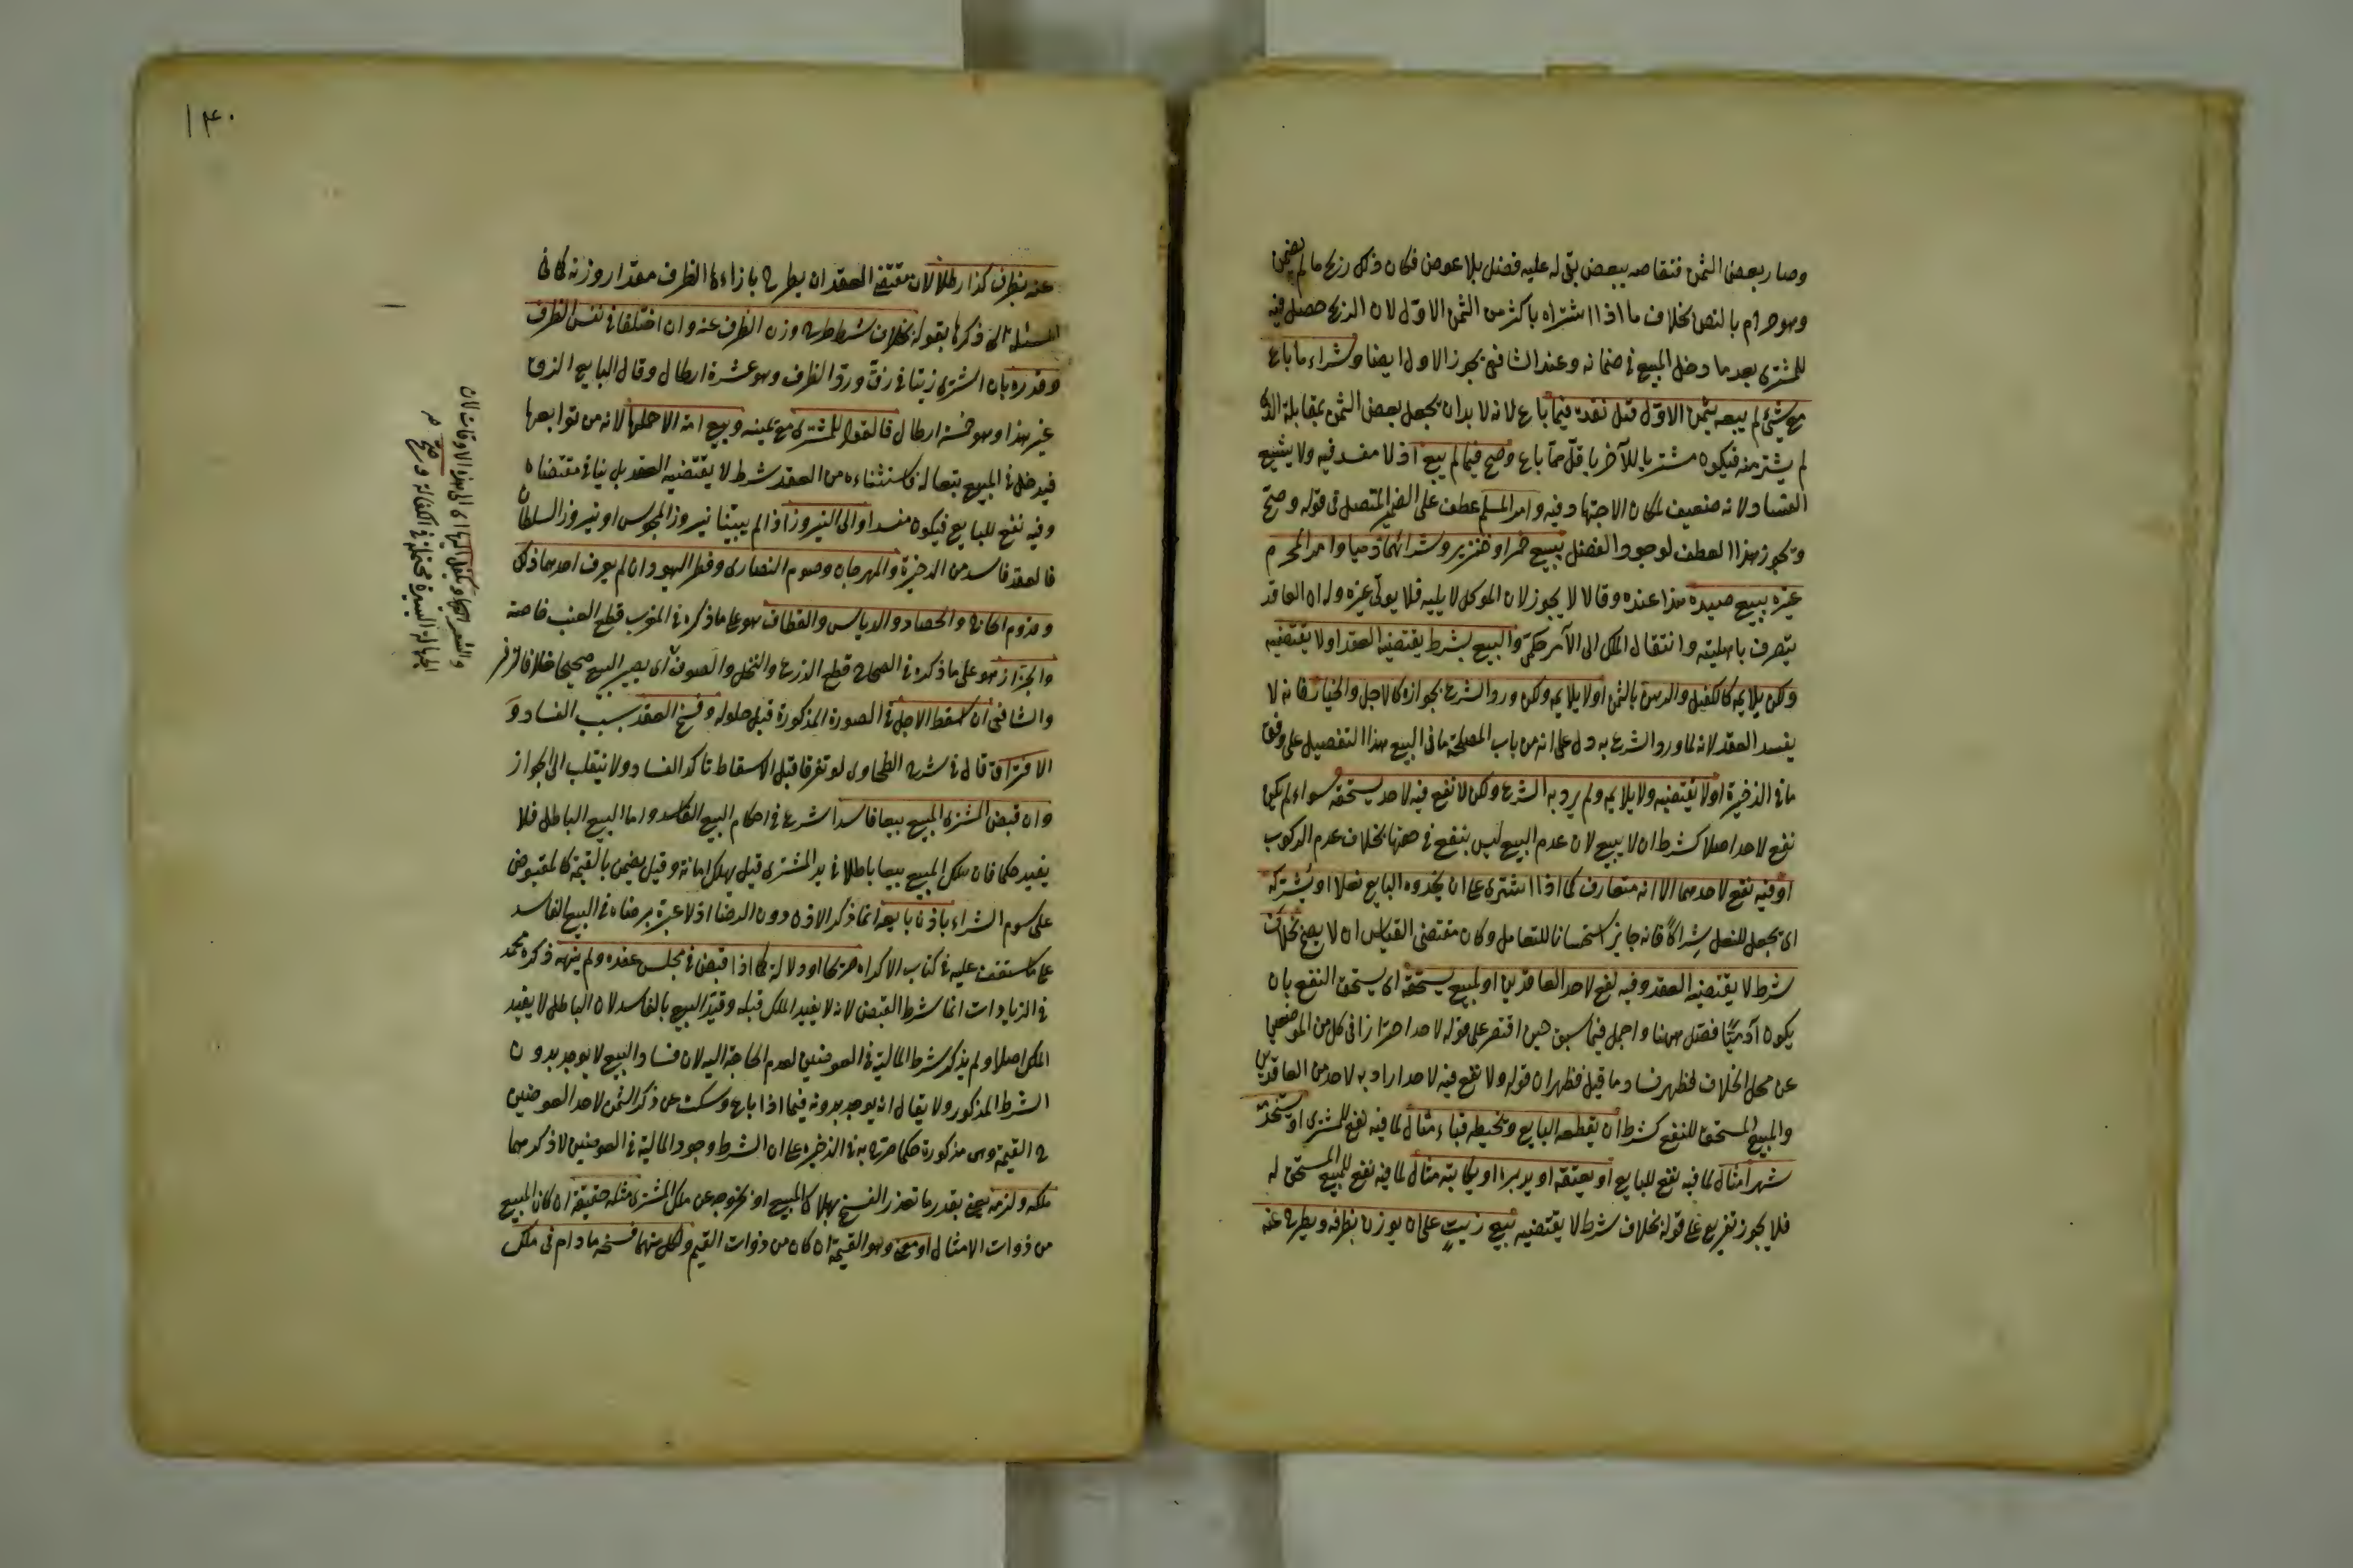 وصار بعض الثمن فتقاصه ببعض بقى له عليه فضل بلا عوض فكان ذلك ربح ما لم يضمن
وهو حرام بالنص بخلاف ما اذا اشتراه باكثر من الثمن الاول لان الربح حصل فيه
للمشترى بعد ما دخل المبيع فى ضمانه وعند الشافعى يجوز الاول ايضا وشراء ما باع
مع شئ لم يبعه بثمن الاول قبل نقده فيما باع لانه لا بد ان يجعل بعض الثمن بمقابلة الذى
لم يشتر منه فيكون مشتريا للآخر باقل مما باع وصح فيما لم يبع اذ لا مفسد فيه ولا يشيع
الفساد لانه ضعيف لمكان الاجتهاد فيه وامر المسلم عطف على الضمير المتصل فى قوله وصح
ويجوز هذا العطف لوجود الفصل ببيع خمر او خنزير وشرائهما ذميا وامر المحرم
غيره ببيع صيده هذا عنده وقالا لا يجوز لان الموكل لا يليه فلا يولى غيره وله ان العاقد
يتصرف باهليته وانتقال الملك الى الآمر حكمى والبيع بشرط يقتضيه العقد او لا يقتضيه
ولكن يلايمه كالكفيل والرهن بالثمن او لا يلايمه ولكن ورد الشرع بجوازه كالاجل والخيار فانه لا
يفسد العقد لانه لما ورد الشرع به دل على انه من باب المصلحة ما فى البيع هذا التفصيل على وفق
ما فى الذخيرة او لا يقتضيه ولا يلايمه ولم يرد به الشرع ولكن لا نفع فيه لاحد يستحقه سواء لم يكن
نفع لاحد اصلا كشرط ان لا يبيع لان عدم البيع ليس بنفع فى حقها بخلاف عدم الركوب
او فيه نفع لاحدهما الا انه متعارف كما اذا اشترى على ان يحذوه البايع نعلا او يشركه
اى يجعل للنعل شراكا فانه جايز استحسانا للتعامل وكان مقتضى القياس ان لا يصح بخلاف
شرط لا يقتضيه العقد وفيه نفع لاحد العاقدين او لمبيع يستحقه اى يستحق النفع بان
يكون آدميا فصل ههنا واجمل فيما سبق حين اقتصر على قوله لاحد احترازا فى كل من الموضعين
عن محل الخلاف فظهر فساد ما قيل فظهر ان قوله ولا نفع فيه لاحد اراد به لاحد من العاقدين
والمبيع المستحق للنفع كشرط ان يقطعه البايع ويخيطه قباء مثال لما فيه نفع للمشترى او يستخدمه
شهرا مثال لما فيه نفع للبايع او يعتقه او يدبره او يكاتبه مثال لما فيه نفع للمبيع المستحق له
فلا يجوز تفريع على قوله بخلاف شرط لا يقتضيه بيع زيت على ان يوزن بظرفه ويطرح عنه
۱۴۰
عنه بظرف كذا رطلا لان مقتضى العقد ان يطرح بازاء الظرف مقدار وزنه كما فى
المسئلة التى ذكرها بقوله بخلاف شرط طرح وزن الظرف عنه وان اختلفا فى نفس الظرف
وقدره بان اشترى زيتا فى زق ورد الظرف وهو عشرة ارطال وقال البايع الزق
غير هذا وهو خمسة ارطال فالقول للمشترى مع يمينه وبيع امة الا حملها لانه من توابعها
فيدخل فى المبيع تبعا له فاستثناءه من العقد شرط لا يقتضيه العقد بل ينافى مقتضاه
وفيه نفع للبايع فيكون مفسدا والى النيروز اذا لم يبينا نيروز المجوس او نيروز السلطان
فالعقد فاسد من الذخيرة والمهرجان وصوم النصارى وفطر اليهود ان لم يعرف احدهما ذلك
وقدوم الحاج والحصاد والدياس والقطاف هو على ما ذكره فى المغرب قطع العنب خاصة
والجزاز هو على ما ذكره فى الصحاح قطع الزرع والنخل والصوف اى يصير البيع صحيحا خلافا لزفر
والشافعى ان اسقط الاجل فى الصورة المذكورة قبل حلوله وفسخ العقد بسبب الفساد و
الافتراق قال فى شرح الطحاوى لو تفرقا قبل الاسقاط تاكد الفساد ولا ينقلب الى الجواز
وان قبض المشترى المبيع بيعا فاسدا شرع فى احكام البيع الفاسد واما البيع الباطل فلا
يفيد حكما فان هلك المبيع بيعا باطلا فى يد المشترى قيل يهلك امانة وقيل يضمن بالقيمة كالمقبوض
على سوم الشراء باذن بايعه انما ذكر الاذن دون الرضا اذ لا عبرة برضاه فى البيع الفاسد
على ما ستقف عليه فى كتاب الاكراه صريحا او دلالة كما اذا قبض فى مجلس عقده ولم ينهه ذكره محمد
فى الزيادات انما شرط القبض لانه لا يفيد الملك قبله وقيد البيع بالفاسد لان الباطل لا يفيد
الملك اصلا ولم يذكر شرط المالية فى العوضين لعدم الحاجة اليه لان فساد البيع لا يوجد بدون
الشرط المذكور ولا يقال انه يوجد بدونه فيما اذا باع وسكت عن ذكر الثمن لاحد العوضين
ح القيمة وهى مذكورة حكما صرح به فى الذخيرة على ان الشرط وجود المالية فى العوضين لا ذكرهما
ملكه ولزمه يعنى بقدر ما تعذر الفسخ بهلاك المبيع او بخروجه عن ملك المشترى مثله حقيقة ان كان المبيع
من ذوات الامثال او معنى وهو القيمة ان كان من ذوات القيم ولكل منهما فسخه ما دام فى ملك
الجهالة اليسيرة محتملة فى الكفالة وصح